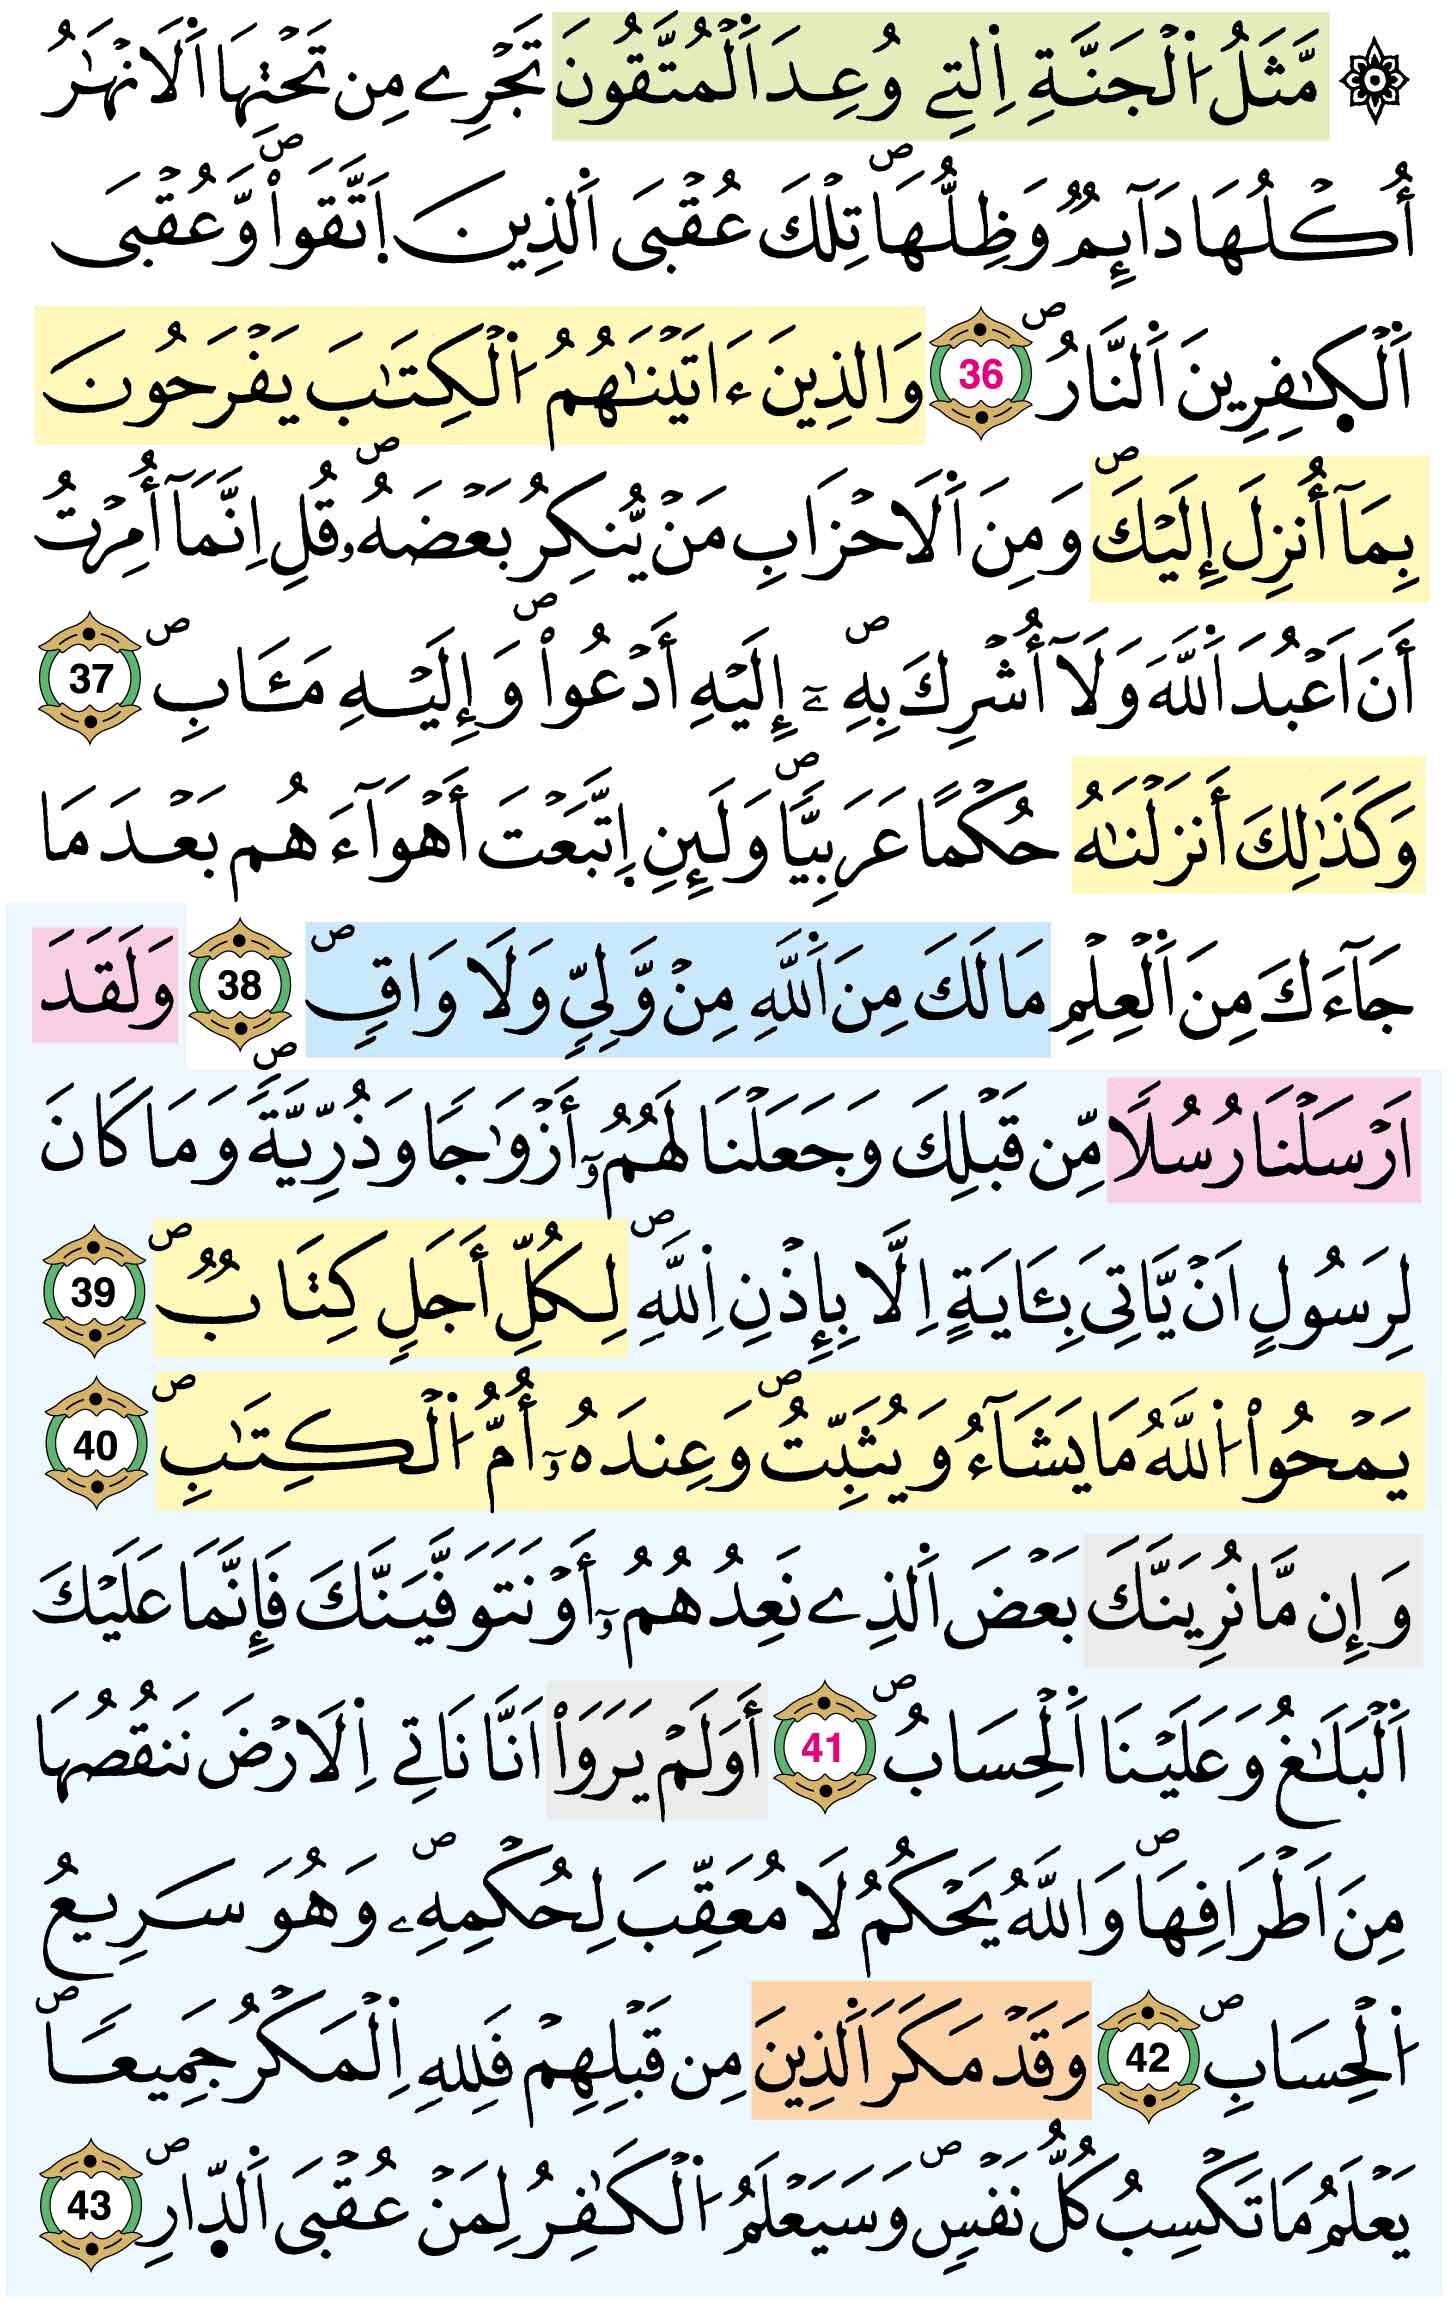 ۞ مَّثَلُ اُ۬لْجَنَّةِ اِ۬لتِے وُعِدَ اَ۬لْمُتَّقُونَ تَجْرِے مِن تَحْتِهَا اَ۬لَانْهَٰرُ
أُكْلُهَا دَآئِمٞ وَظِلُّهَاۖ تِلْكَ عُقْبَى اَ۬لذِينَ اَ۪تَّقَواْۖ وَّعُقْبَى
اَ۬لْكٰ۪فِرِينَ اَ۬لنَّارُۖ 36 وَالذِينَ ءَاتَيْنَٰهُمُ اُ۬لْكِتَٰبَ يَفْرَحُونَ
بِمَآ أُنزِلَ إِلَيْكَۖ وَمِنَ اَ۬لَاحْزَابِ مَنْ يُّنكِرُ بَعْضَهُۥۖ قُلِ اِنَّمَآ أُمِرْتُ
أَنَ اَعْبُدَ اَ۬للَّهَ وَلَآ أُشْرِكَ بِهِۦٓۖ إِلَيْهِ أَدْعُواْۖ وَإِلَيْهِ مَـَٔابِۖ 37
وَكَذَٰلِكَ أَنزَلْنَٰهُ حُكْماً عَرَبِيّاٗۖ وَلَئِنِ اِ۪تَّبَعْتَ أَهْوَآءَهُم بَعْدَ مَا
جَآءَكَ مِنَ اَ۬لْعِلْمِ مَا لَكَ مِنَ اَ۬للَّهِ مِنْ وَّلِيّٖ وَلَا وَاقٖۖ 38 وَلَقَدَ
اَرْسَلْنَا رُسُلاٗ مِّن قَبْلِكَ وَجَعَلْنَا لَهُمُۥٓ أَزْوَٰجاٗ وَذُرِّيَّةٗۖ وَمَا كَانَ
لِرَسُولٍ اَنْ يَّاتِيَ بِـَٔايَةٍ اِلَّا بِإِذْنِ اِ۬للَّهِۖ لِكُلِّ أَجَلٖ كِتَابٞۖ 39
يَمْحُواْ اُ۬للَّهُ مَا يَشَآءُ وَيُثَبِّتُۖ وَعِندَهُۥٓ أُمُّ اُ۬لْكِتَٰبِۖ 40
وَإِن مَّا نُرِيَنَّكَ بَعْضَ اَ۬لذِے نَعِدُهُمُۥٓ أَوْ نَتَوَفَّيَنَّكَ فَإِنَّمَا عَلَيْكَ
اَ۬لْبَلَٰغُ وَعَلَيْنَا اَ۬لْحِسَابُۖ 41 أَوَلَمْ يَرَوَاْ اَنَّا نَاتِے اِ۬لَارْضَ نَنقُصُهَا
مِنَ اَطْرَافِهَاۖ وَاللَّهُ يَحْكُمُ لَا مُعَقِّبَ لِحُكْمِهِۦۖ وَهُوَ سَرِيعُ
اُ۬لْحِسَابِۖ 42 وَقَدْ مَكَرَ اَ۬لذِينَ مِن قَبْلِهِمْ فَلِلهِ اِ۬لْمَكْرُ جَمِيعاٗۖ
يَعْلَمُ مَا تَكْسِبُ كُلُّ نَفْسٖۖ وَسَيَعْلَمُ اُ۬لْكَٰفِرُ لِمَنْ عُقْبَى اَ۬لدّ۪ارِۖ 43